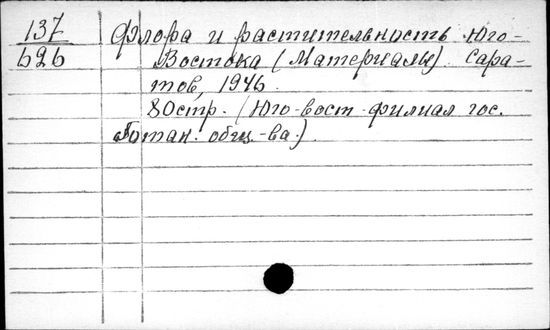 137 Флора и растительность Юго-
626 Востока (Материалы). Сара-
тов, 1946.
80стр. (Юго-вост. филиал гос.
ботан. общ-ва.)